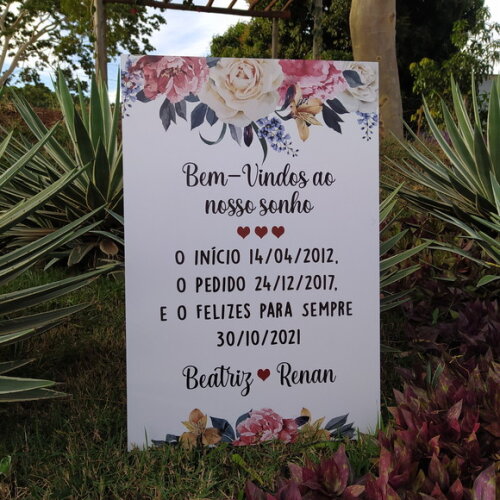 Bem-Vindos ao
nosso sonho
O INÍCIO 14/04/2012,
O PEDIDO 24/12/2017,
E O FELIZES PARA SEMPRE
30/10/2021
Beatriz Renan